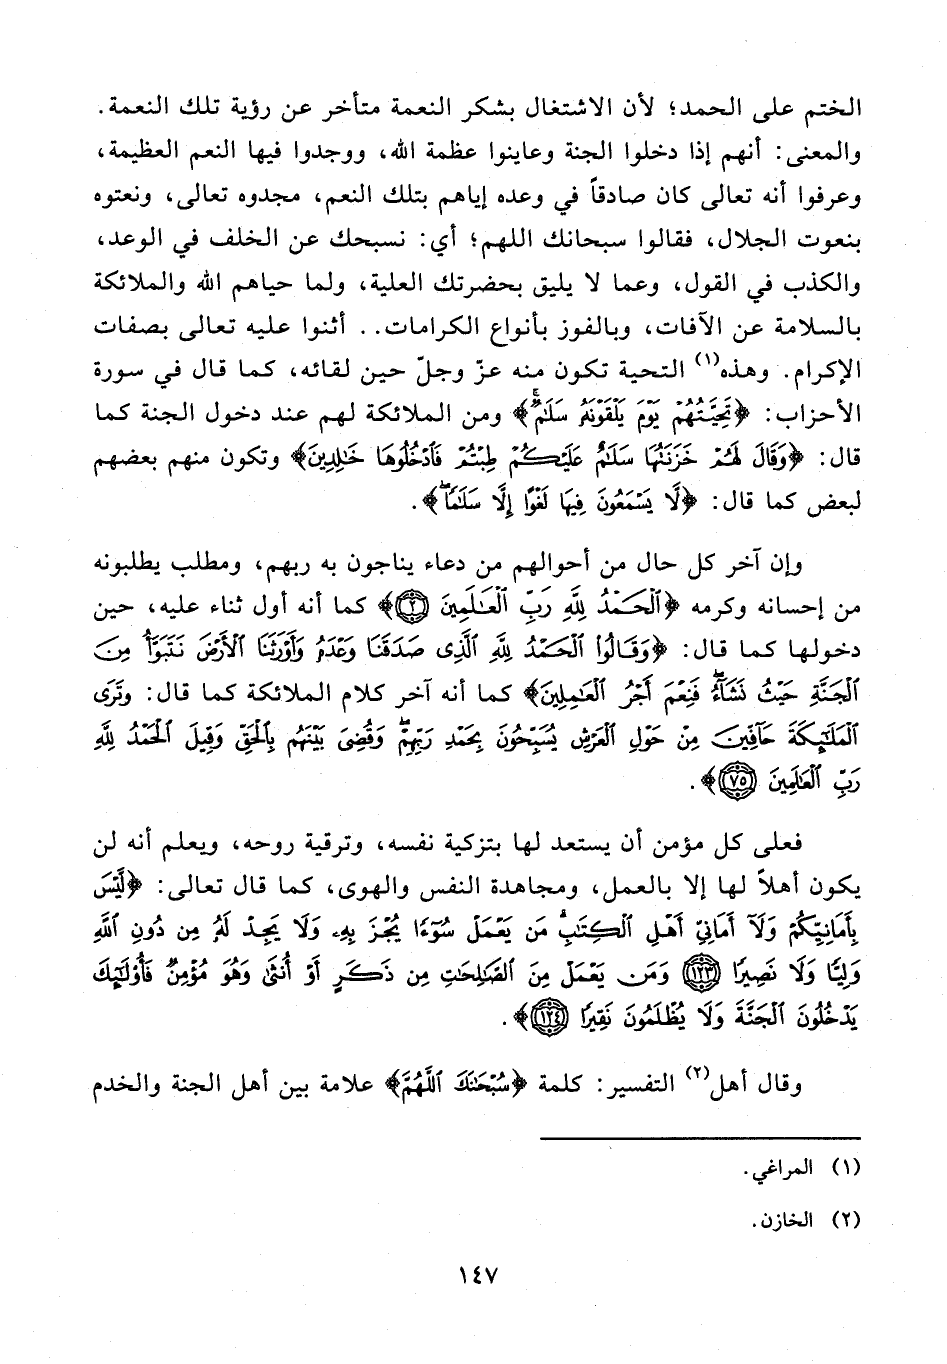 الختم على الحمد؛ لأن الاشتغال بشكر النعمة متأخر عن رؤية تلك النعمة.
والمعنى: أنهم إذا دخلوا الجنة وعاينوا عظمة الله، ووجدوا فيها النعم العظيمة،
وعرفوا أنه تعالى كان صادقاً في وعده إياهم بتلك النعم، مجدوه تعالى، ونعتوه
بنعوت الجلال، فقالوا سبحانك اللهم؛ أي: نسبحك عن الخلف في الوعد،
والكذب في القول، وعما لا يليق بحضرتك العلية، ولما حياهم الله والملائكة
بالسلامة عن الآفات، وبالفوز بأنواع الكرامات.. أثنوا عليه تعالى بصفات
الإكرام. وهذه(١) التحية تكون منه عزّ وجلّ حين لقائه، كما قال في سورة
الأحزاب: ﴿تَحِيَّتُهُمْ يَوْمَ يَلْقَوْنَهُۥ سَلَٰمٌۚ﴾ ومن الملائكة لهم عند دخول الجنة كما
قال: ﴿وَقَالَ لَهُمْ خَزَنَتُهَا سَلَٰمٌ عَلَيْكُمْ طِبْتُمْ فَٱدْخُلُوهَا خَٰلِدِينَ﴾ وتكون منهم بعضهم
لبعض كما قال: ﴿لَّا يَسْمَعُونَ فِيهَا لَغْوًا إِلَّا سَلَٰمًاۖ﴾.
وإن آخر كل حال من أحوالهم من دعاء يناجون به ربهم، ومطلب يطلبونه
من إحسانه وكرمه ﴿ٱلْحَمْدُ لِلَّهِ رَبِّ ٱلْعَٰلَمِينَ ٢﴾ كما أنه أول ثناء عليه، حين
دخولها كما قال: ﴿وَقَالُوا۟ ٱلْحَمْدُ لِلَّهِ ٱلَّذِى صَدَقَنَا وَعْدَهُۥ وَأَوْرَثَنَا ٱلْأَرْضَ نَتَبَوَّأُ مِنَ
ٱلْجَنَّةِ حَيْثُ نَشَآءُۖ فَنِعْمَ أَجْرُ ٱلْعَٰمِلِينَ﴾ كما أنه آخر كلام الملائكة كما قال: وَتَرَى
ٱلْمَلَٰٓئِكَةَ حَآفِّينَ مِنْ حَوْلِ ٱلْعَرْشِ يُسَبِّحُونَ بِحَمْدِ رَبِّهِمْۖ وَقُضِىَ بَيْنَهُم بِٱلْحَقِّ وَقِيلَ ٱلْحَمْدُ لِلَّهِ
رَبِّ ٱلْعَٰلَمِينَ ٧٥﴾.
فعلى كل مؤمن أن يستعد لها بتزكية نفسه، وترقية روحه، ويعلم أنه لن
يكون أهلاً لها إلا بالعمل، ومجاهدة النفس والهوى، كما قال تعالى: ﴿لَّيْسَ
بِأَمَانِيِّكُمْ وَلَآ أَمَانِىِّ أَهْلِ ٱلْكِتَٰبِۗ مَن يَعْمَلْ سُوٓءًا يُجْزَ بِهِۦ وَلَا يَجِدْ لَهُۥ مِن دُونِ ٱللَّهِ
وَلِيًّا وَلَا نَصِيرًا ١٢٣ وَمَن يَعْمَلْ مِنَ ٱلصَّٰلِحَٰتِ مِن ذَكَرٍ أَوْ أُنثَىٰ وَهُوَ مُؤْمِنٌ فَأُو۟لَٰٓئِكَ
يَدْخُلُونَ ٱلْجَنَّةَ وَلَا يُظْلَمُونَ نَقِيرًا ١٢٤﴾.
وقال أهل(٢) التفسير: كلمة ﴿سُبْحَٰنَكَ ٱللَّهُمَّ﴾ علامة بين أهل الجنة والخدم
(١) المراغي.
(٢) الخازن.
١٤٧